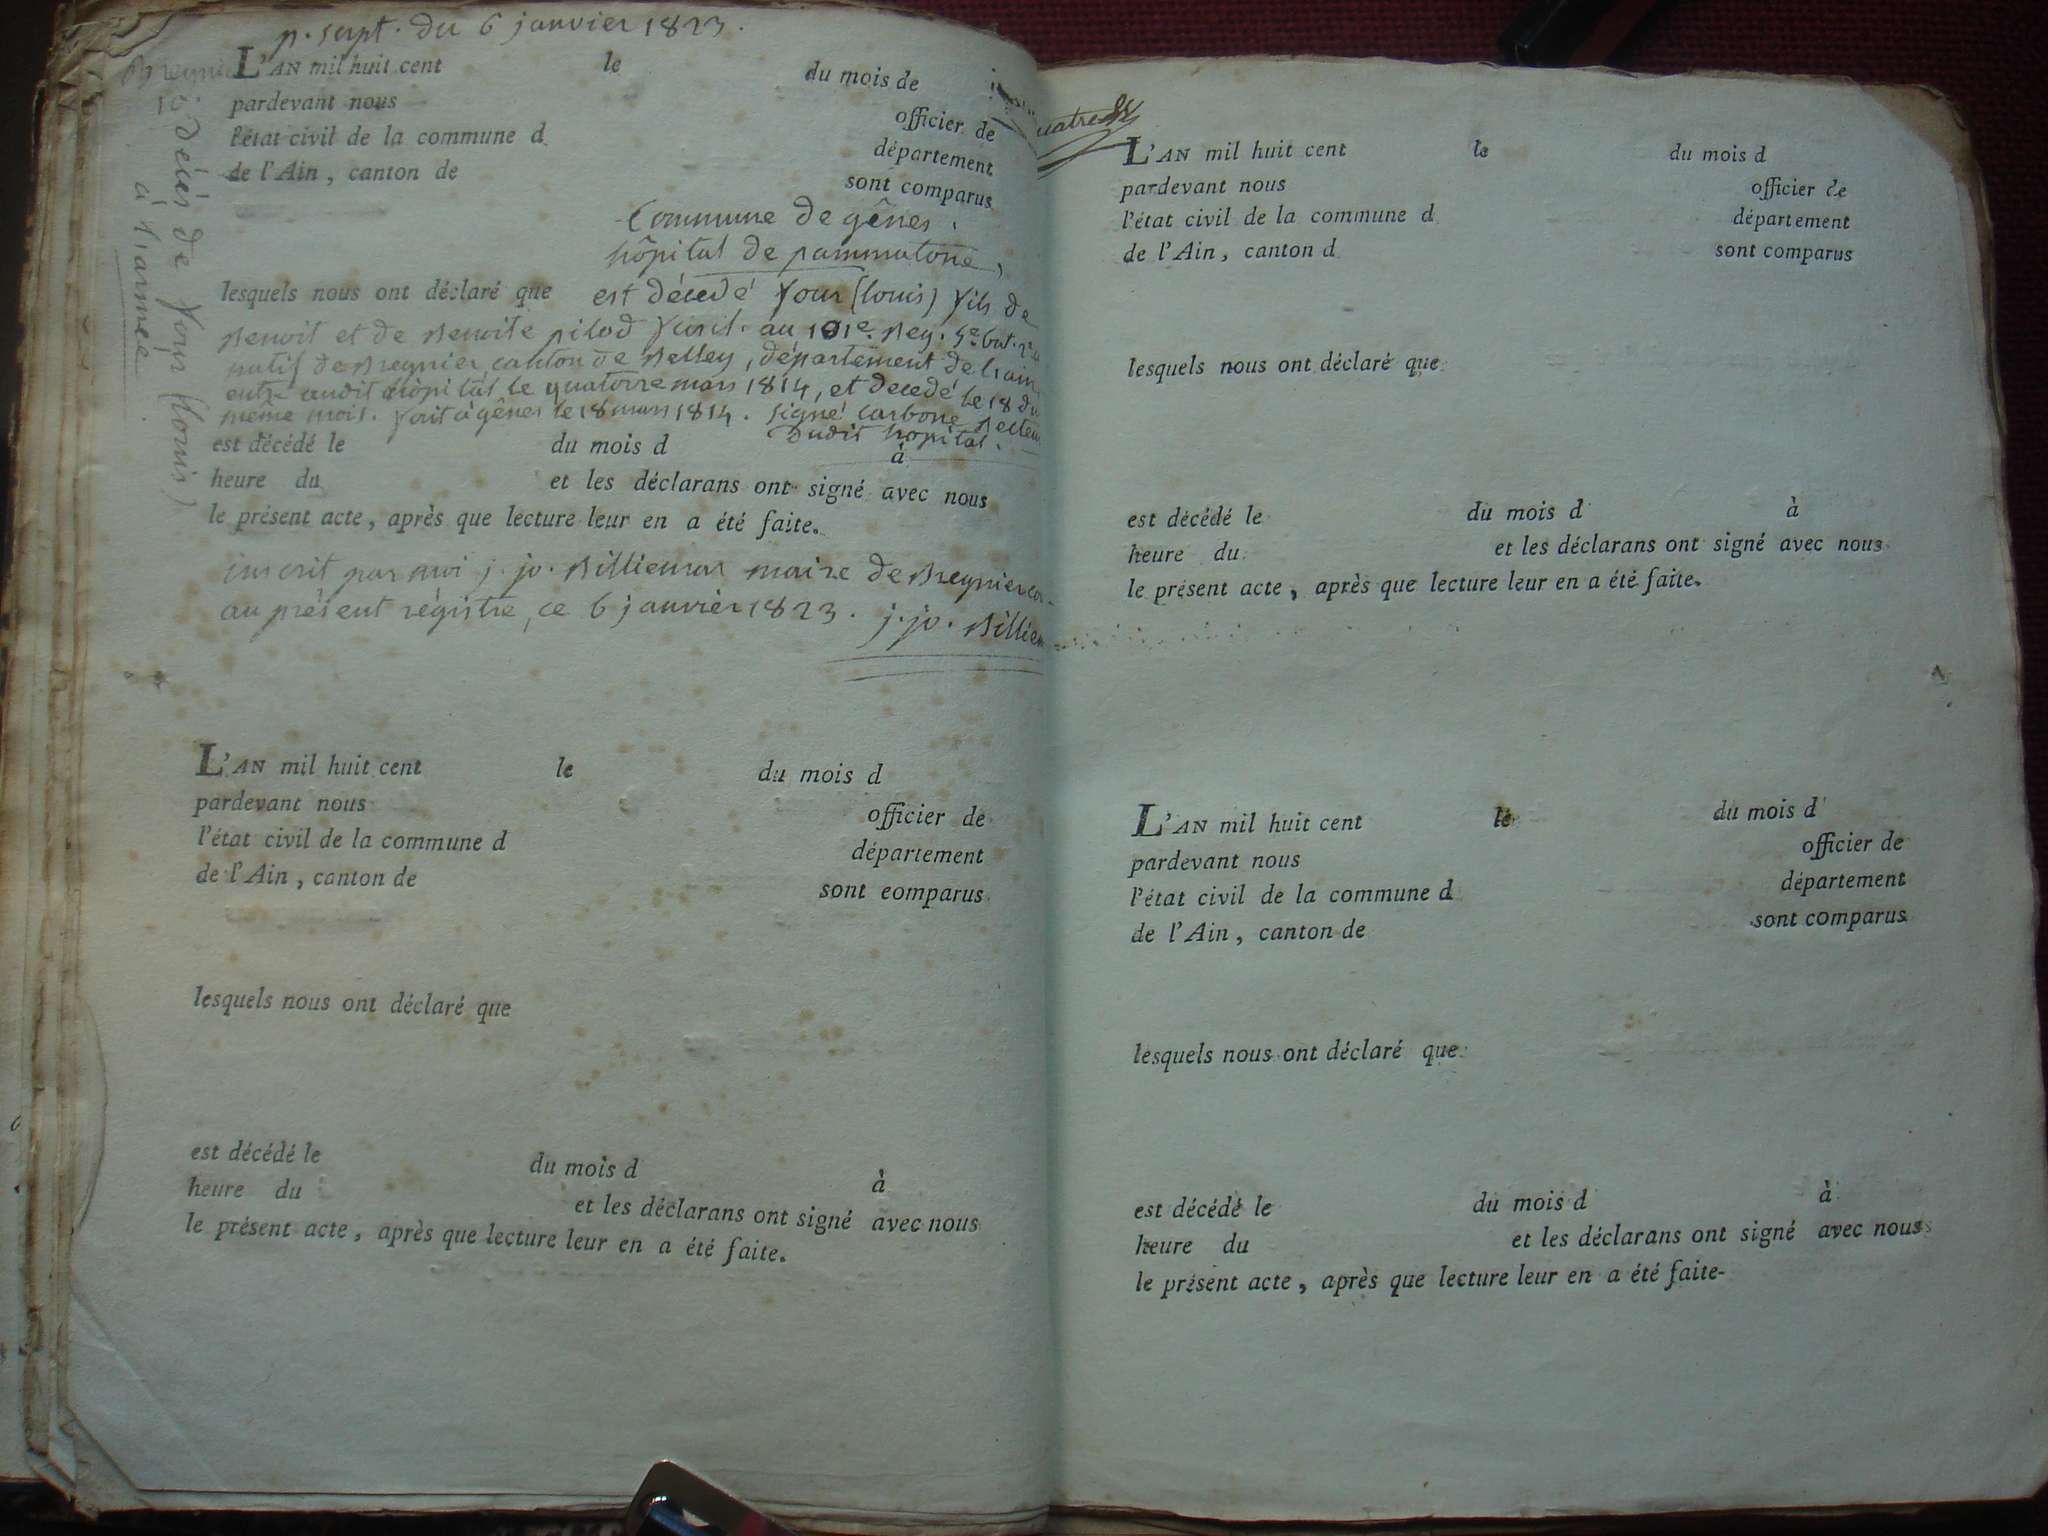 p. sept. du 6 janvier 1823.
L'AN mil huit cent le du mois de
pardevant nous officier de
l'état civil de la commune d département
de l'Ain, canton de sont comparus
Décès de four (Louis)
à l'armée
Commune de gênes.
hôpital de pammatone,
lesquels nous ont déclaré que est décedé four (louis) fils de
Benoit et de Benoite pilod fusil. au 101e. Reg. 5e bat.
natif de Bregnier canton de Belley, département de l'ain,
entré audit hôpital le quatorze mars 1814, et decedé le 18 du
même mois. fait à gênes le 18 mars 1814. signé Carbone Recteur
dudit hopital.
est décédé le du mois d à
heure du et les déclarans ont signé avec nous
le présent acte, après que lecture leur en a été faite.
inscrit par moi j. jo. Billiemaz maire de Bregnier cor.
au présent régistre, ce 6 janvier 1823. j. jo. Billiem
L'AN mil huit cent le du mois d
pardevant nous officier de
l'état civil de la commune d département
de l'Ain, canton de sont eomparus
lesquels nous ont déclaré que
est décédé le du mois d à
heure du et les déclarans ont signé avec nous
le présent acte, après que lecture leur en a été faite.
L'AN mil huit cent le du mois d
pardevant nous officier de
l'état civil de la commune d département
de l'Ain, canton d sont comparus
lesquels nous ont déclaré que
est décédé le du mois d à
heure du et les déclarans ont signé avec nous
le présent acte, après que lecture leur en a été faite.
L'AN mil huit cent le du mois d
pardevant nous officier de
l'état civil de la commune d département
de l'Ain, canton de sont comparus
lesquels nous ont déclaré que
est décédé le du mois d à
heure du et les déclarans ont signé avec nous
le présent acte, après que lecture leur en a été faite-